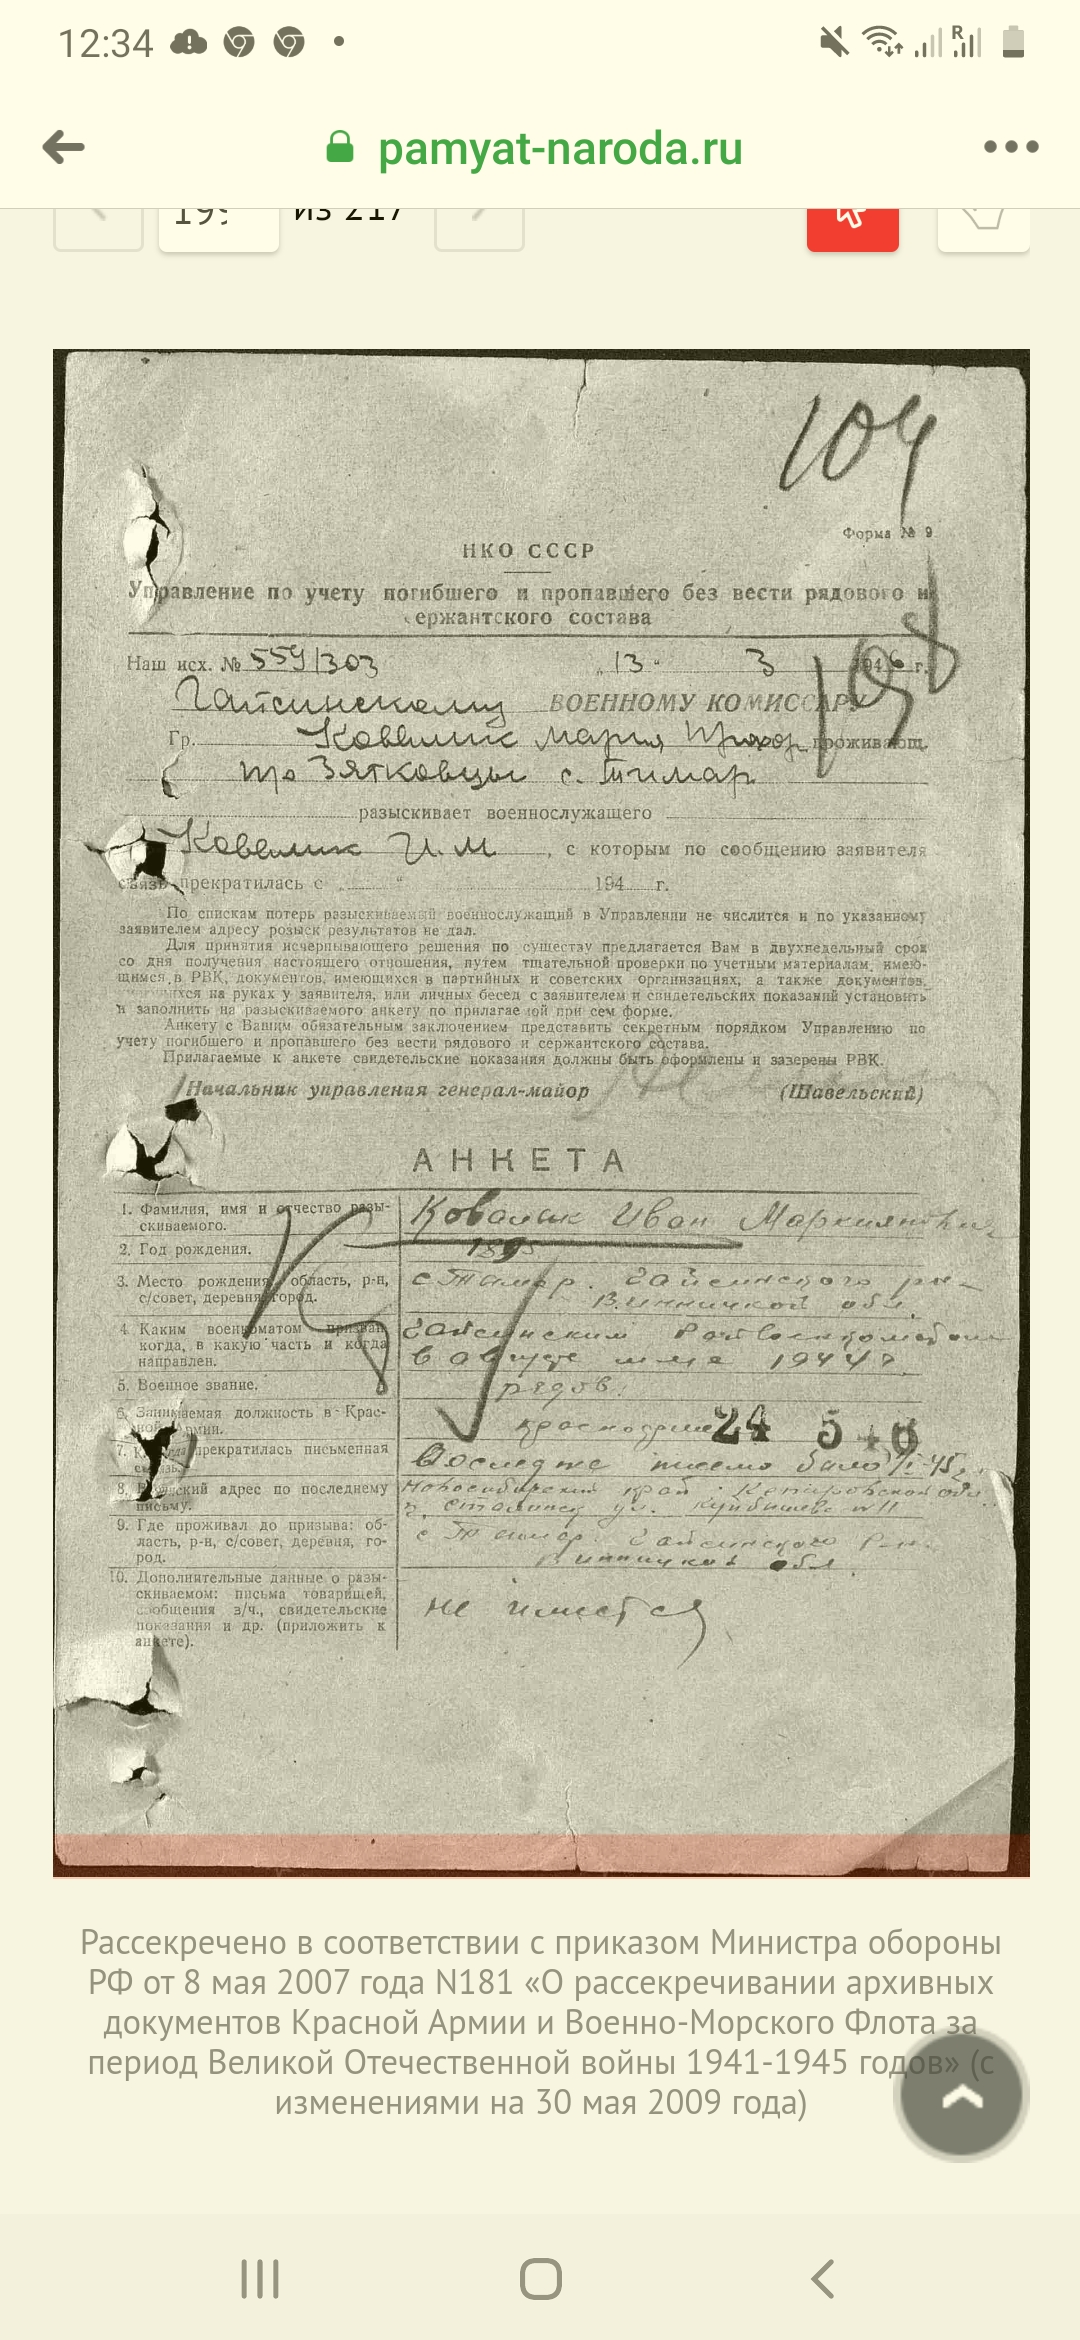 12:34
pamyat-naroda.ru
199 из 217
104
Форма № 9
НКО СССР
Управление по учету погибшего и пропавшего без вести рядового и
сержантского состава
Наш исх. № 559/303 „13" 3 1946 г.
108
Гайсинскому ВОЕННОМУ КОМИССАРУ
Гр. Ковалик Мария Прохор. проживающ.
по Зятковцы с. Тимар
разыскивает военнослужащего
Ковалик И.М , с которым по сообщению заявителя
связь прекратилась с „ " 194 г.
По спискам потерь разыскиваемый военнослужащий в Управлении не числится и по указанному
заявителем адресу розыск результатов не дал.
Для принятия исчерпывающего решения по существу предлагается Вам в двухнедельный срок
со дня получения настоящего отношения, путем тщательной проверки по учетным материалам, имею-
щимся в РВК, документов, имеющихся в партийных и советских организациях, а также документов,
на руках у заявителя, или личных бесед с заявителем и свидетельских показаний установить
и заполнить на разыскиваемого анкету по прилагаемой при сем форме.
Анкету с Вашим обязательным заключением представить секретным порядком Управлению по
учету погибшего и пропавшего без вести рядового и сержантского состава.
Прилагаемые к анкете свидетельские показания должны быть оформлены и заверены РВК.
Начальник управления генерал-майор (Шавельский)
АНКЕТА
1. Фамилия, имя и отчество разы-
скиваемого.
Ковалык Иван Маркиянович
2. Год рождения.
1895
3. Место рождения, область, р-н,
с/совет, деревня, город.
с. Тимар. Гайсинского р-
Винницкой обл.
4. Каким военкоматом призван,
когда, в какую часть и когда
направлен.
Гайсинским Райвоенкоматом
в августе м-це 1944 г
5. Военное звание.
рядов.
6. Занимаемая должность в Крас-
ной Армии.
24 5 46
7. Когда прекратилась письменная
связь.
Последне письмо было 45 г.
8. Воинский адрес по последнему
письму.
Новосибирский край Кемеровской обл.
г. Сталинск ул. Куйбышева №11
9. Где проживал до призыва: об-
ласть, р-н, с/совет, деревня, го-
род.
с Тимар. Гайсинского р-н.
Винницкой обл
10. Дополнительные данные о разы-
скиваемом: письма товарищей,
сообщения в/ч., свидетельские
показания и др. (приложить к
анкете).
не имеется
Рассекречено в соответствии с приказом Министра обороны
РФ от 8 мая 2007 года N181 «О рассекречивании архивных
документов Красной Армии и Военно-Морского Флота за
период Великой Отечественной войны 1941-1945 годов» (с
изменениями на 30 мая 2009 года)